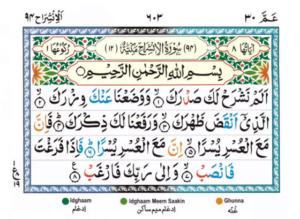 اَلِانْشِرَاح ٩٤ ٦٠٣ عَمَّ ٣٠
رُكُوْعُهَا ١ (٩٤) سُوْرَةُ الْاِنْشِرَاحِ مَكِّيَّةٌ (١٢) اٰيَاتُهَا ٨
بِسْمِ اللّٰهِ الرَّحْمٰنِ الرَّحِيْمِ
اَلَمْ نَشْرَحْ لَكَ صَدْرَكَ ۙ۱ وَوَضَعْنَا عَنْكَ وِزْرَكَ ۙ۲
الَّذِيْٓ اَنْقَضَ ظَهْرَكَ ۙ۳ وَرَفَعْنَا لَكَ ذِكْرَكَ ؕ۴ فَاِنَّ
مَعَ الْعُسْرِ يُسْرًا ۙ۵ اِنَّ مَعَ الْعُسْرِ يُسْرًا ؕ۶ فَاِذَا فَرَغْتَ
فَانْصَبْ ۙ۷ وَ اِلٰى رَبِّكَ فَارْغَبْ ۸
Idghaam Idghaam Meem Saakin Ghunna
ادغام ادغام ميم ساكن غنه